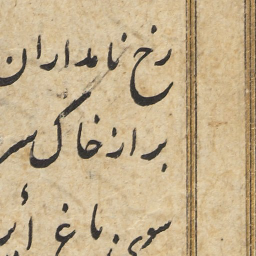 رخ نامداران
بر از خاک سر
سوی باغ